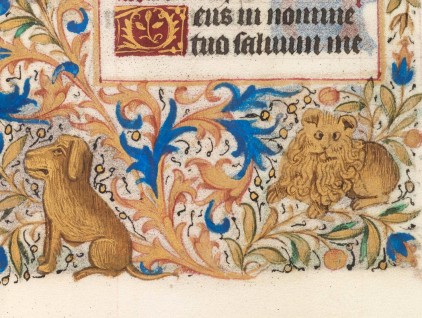 eus in nomine
tuo saluum me